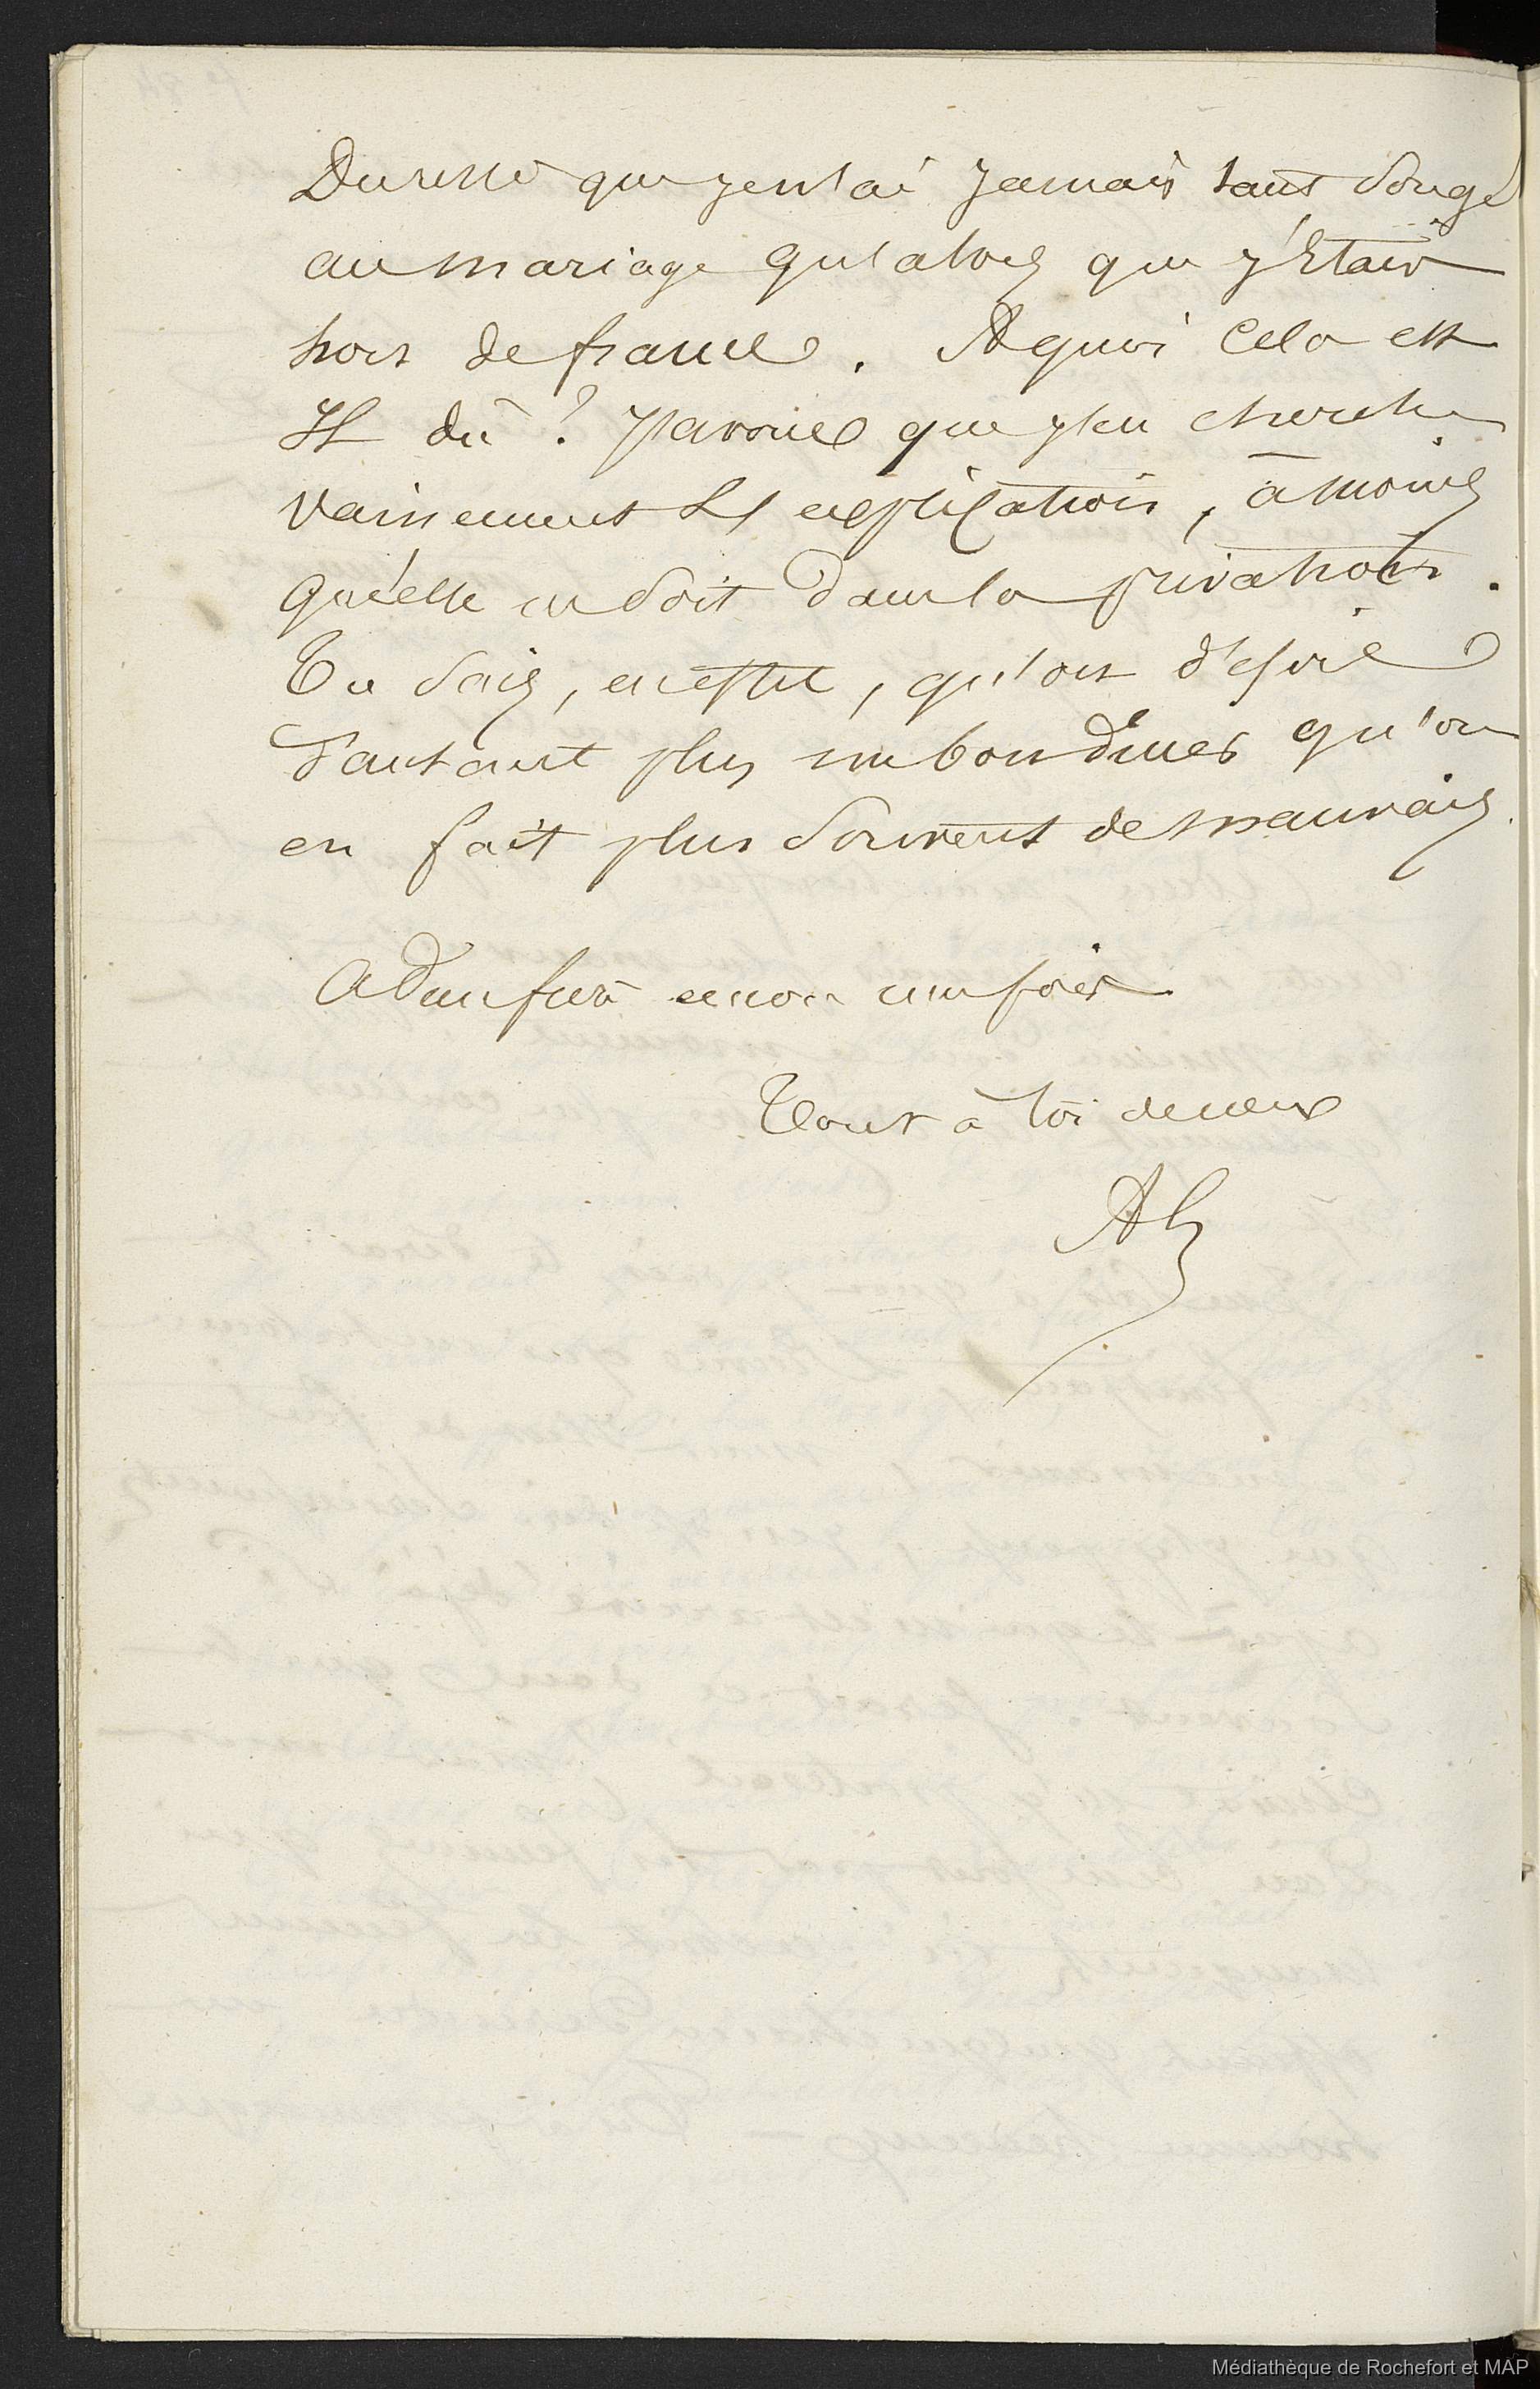 Du reste que je n'ai jamais tant songé
au mariage qu'alors que j'étais
hors de france. A quoi cela est
Il dû ? J'avoue que j'en cherche
vainement l'explication, à moins
qu'elle ne soit dans la privation.
Tu sais, en effet, qu'on désire
d'autant plus un bon dîner qu'on
en fait plus souvent de mauvais.
Adieu encore une fois
Tout à toi de cœur
Médiathèque de Rochefort et MAP